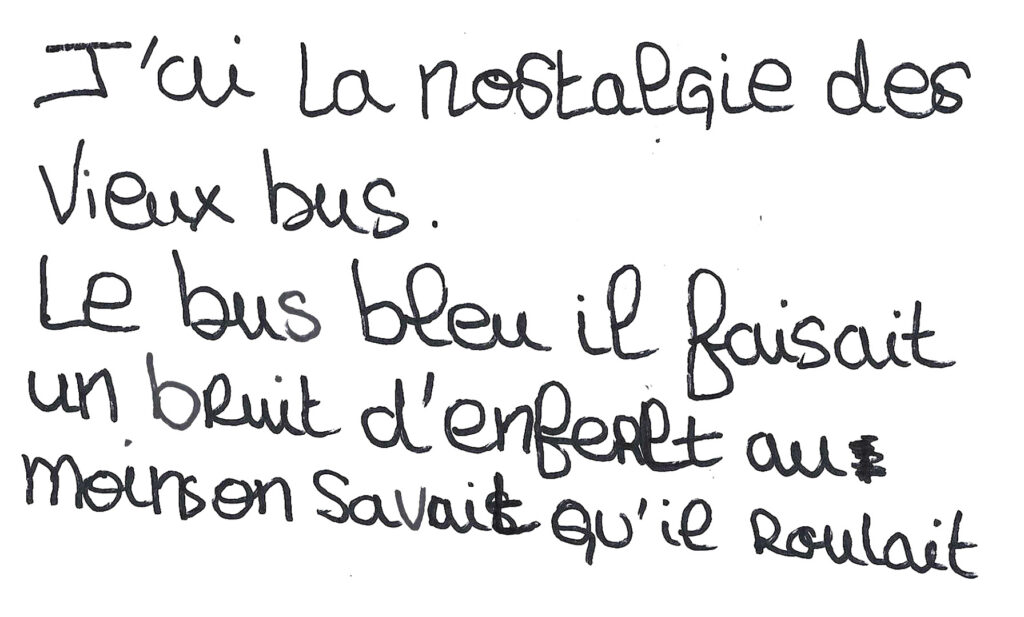 J'ai la nostalgie des
vieux bus.
Le bus bleu il faisait
un bruit d'enferet au
moins on savait qu'il roulait